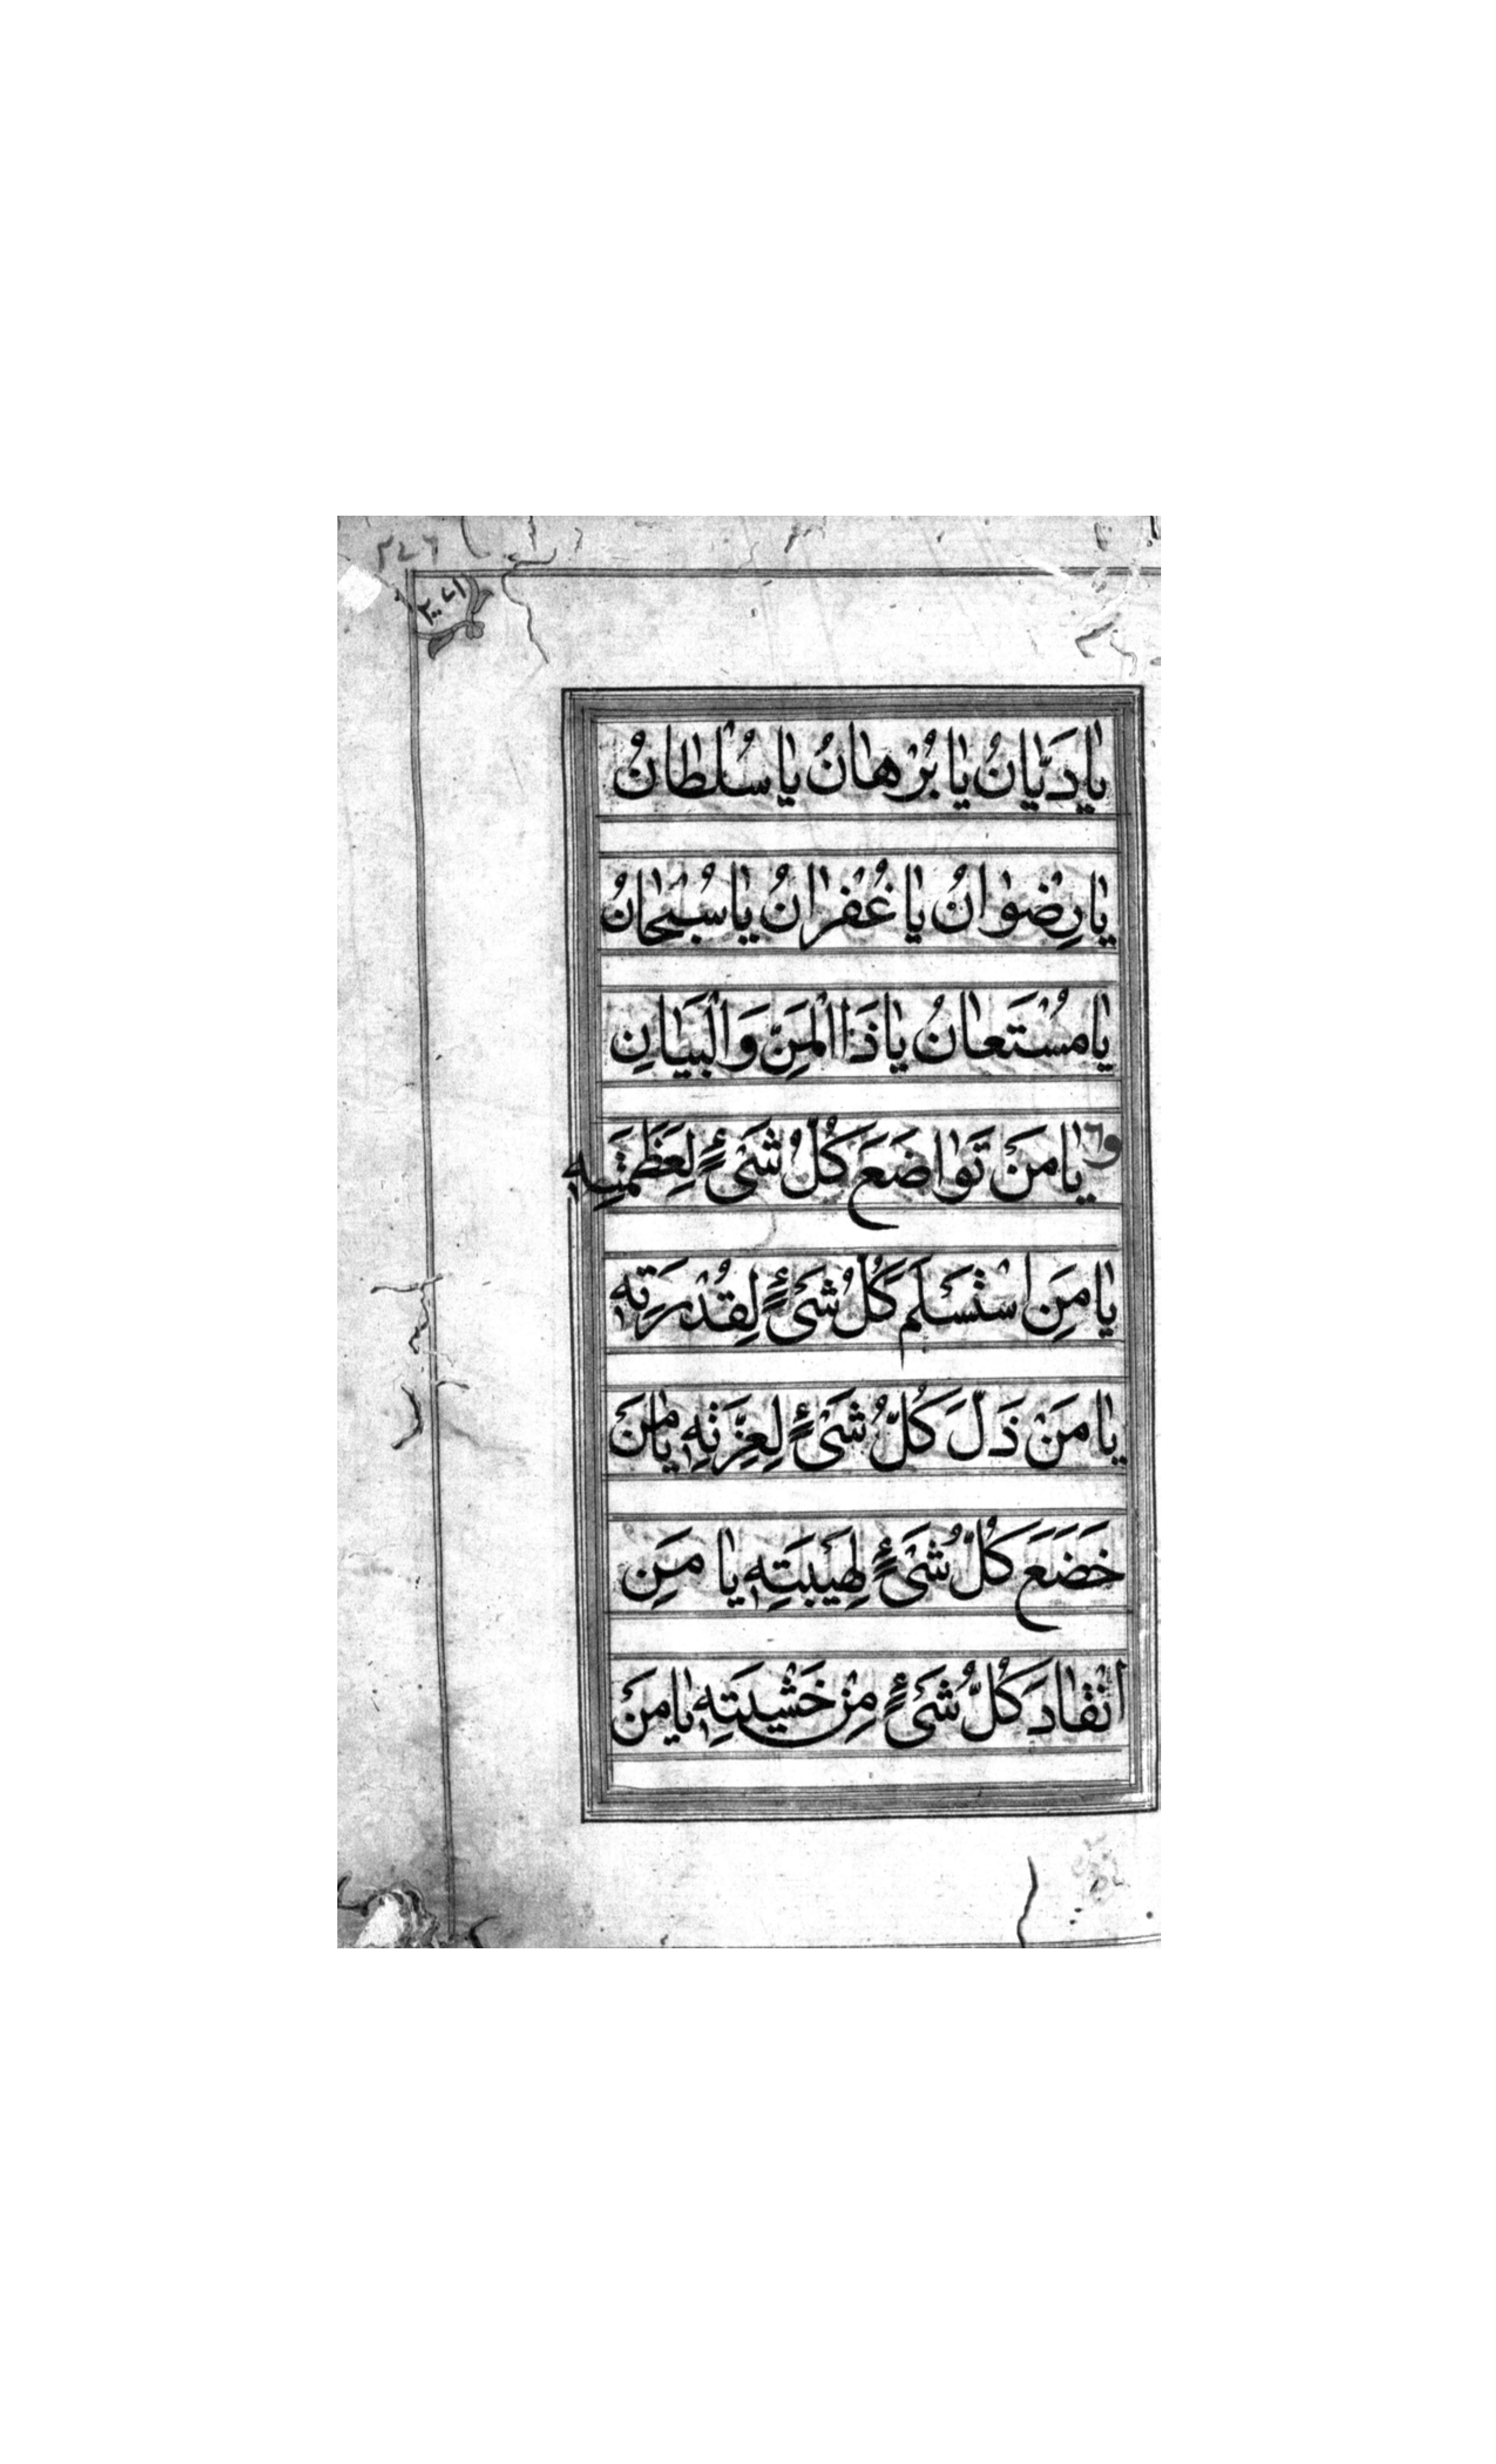 يا دَيّانُ يا بُرْهانُ يا سُلْطانُ
يا رِضْوانُ يا غُفْرانُ يا سُبْحانُ
يا مُسْتَعانُ يا ذَا الْمَنِّ وَالْبَيانِ
يا مَنْ تَواضَعَ كُلُّ شَیْءٍ لِعَظَمَتِهِ
يا مَنِ اسْتَسْلَمَ كُلُّ شَیْءٍ لِقُدْرَتِهِ
يا مَنْ ذَلَّ كُلُّ شَیْءٍ لِعِزَّتِهِ يا مَنْ
خَضَعَ كُلُّ شَیْءٍ لِهَيْبَتِهِ يا مَنِ
انْقادَ كُلُّ شَیْءٍ مِنْ خَشْيَتِهِ يا مَنْ